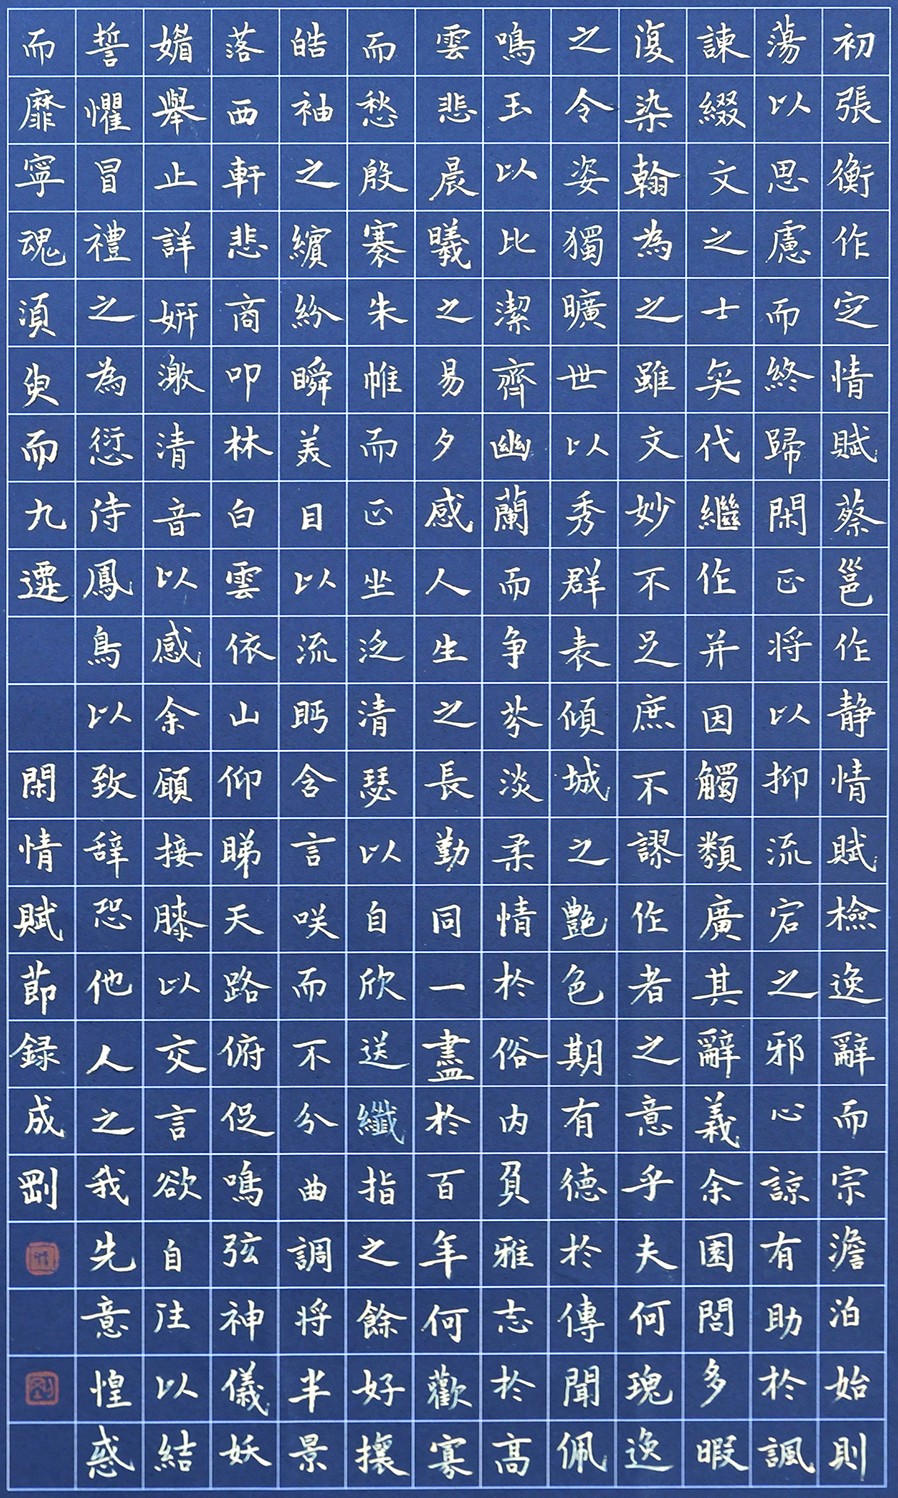 初張衡作定情賦蔡邕作静情賦檢逸辭而宗澹泊始則
蕩以思慮而終歸閑正将以抑流宕之邪心諒有助於諷
諫綴文之士奕代繼作并因觸類廣其辭義余園閭多暇
復染翰為之雖文妙不足庶不謬作者之意乎夫何瑰逸
之令姿獨曠世以秀群表傾城之艷色期有德於傳聞佩
鳴玉以比潔齊幽蘭而争芬淡柔情於俗内負雅志於高
雲悲晨曦之易夕感人生之長勤同一盡於百年何歡寡
而愁殷褰朱帷而正坐泛清瑟以自欣送纖指之餘好攘
皓袖之繽紛瞬美目以流眄含言咲而不分曲調将半景
落西軒悲商叩林白雲依山仰睇天路俯促鳴弦神儀妖
媚舉止詳姸激清音以感余願接膝以交言欲自往以結
誓懼冒禮之為愆待鳳鳥以致辞恐他人之我先意惶惑
而靡寧魂湏臾而九遷 閑情賦節録成剛